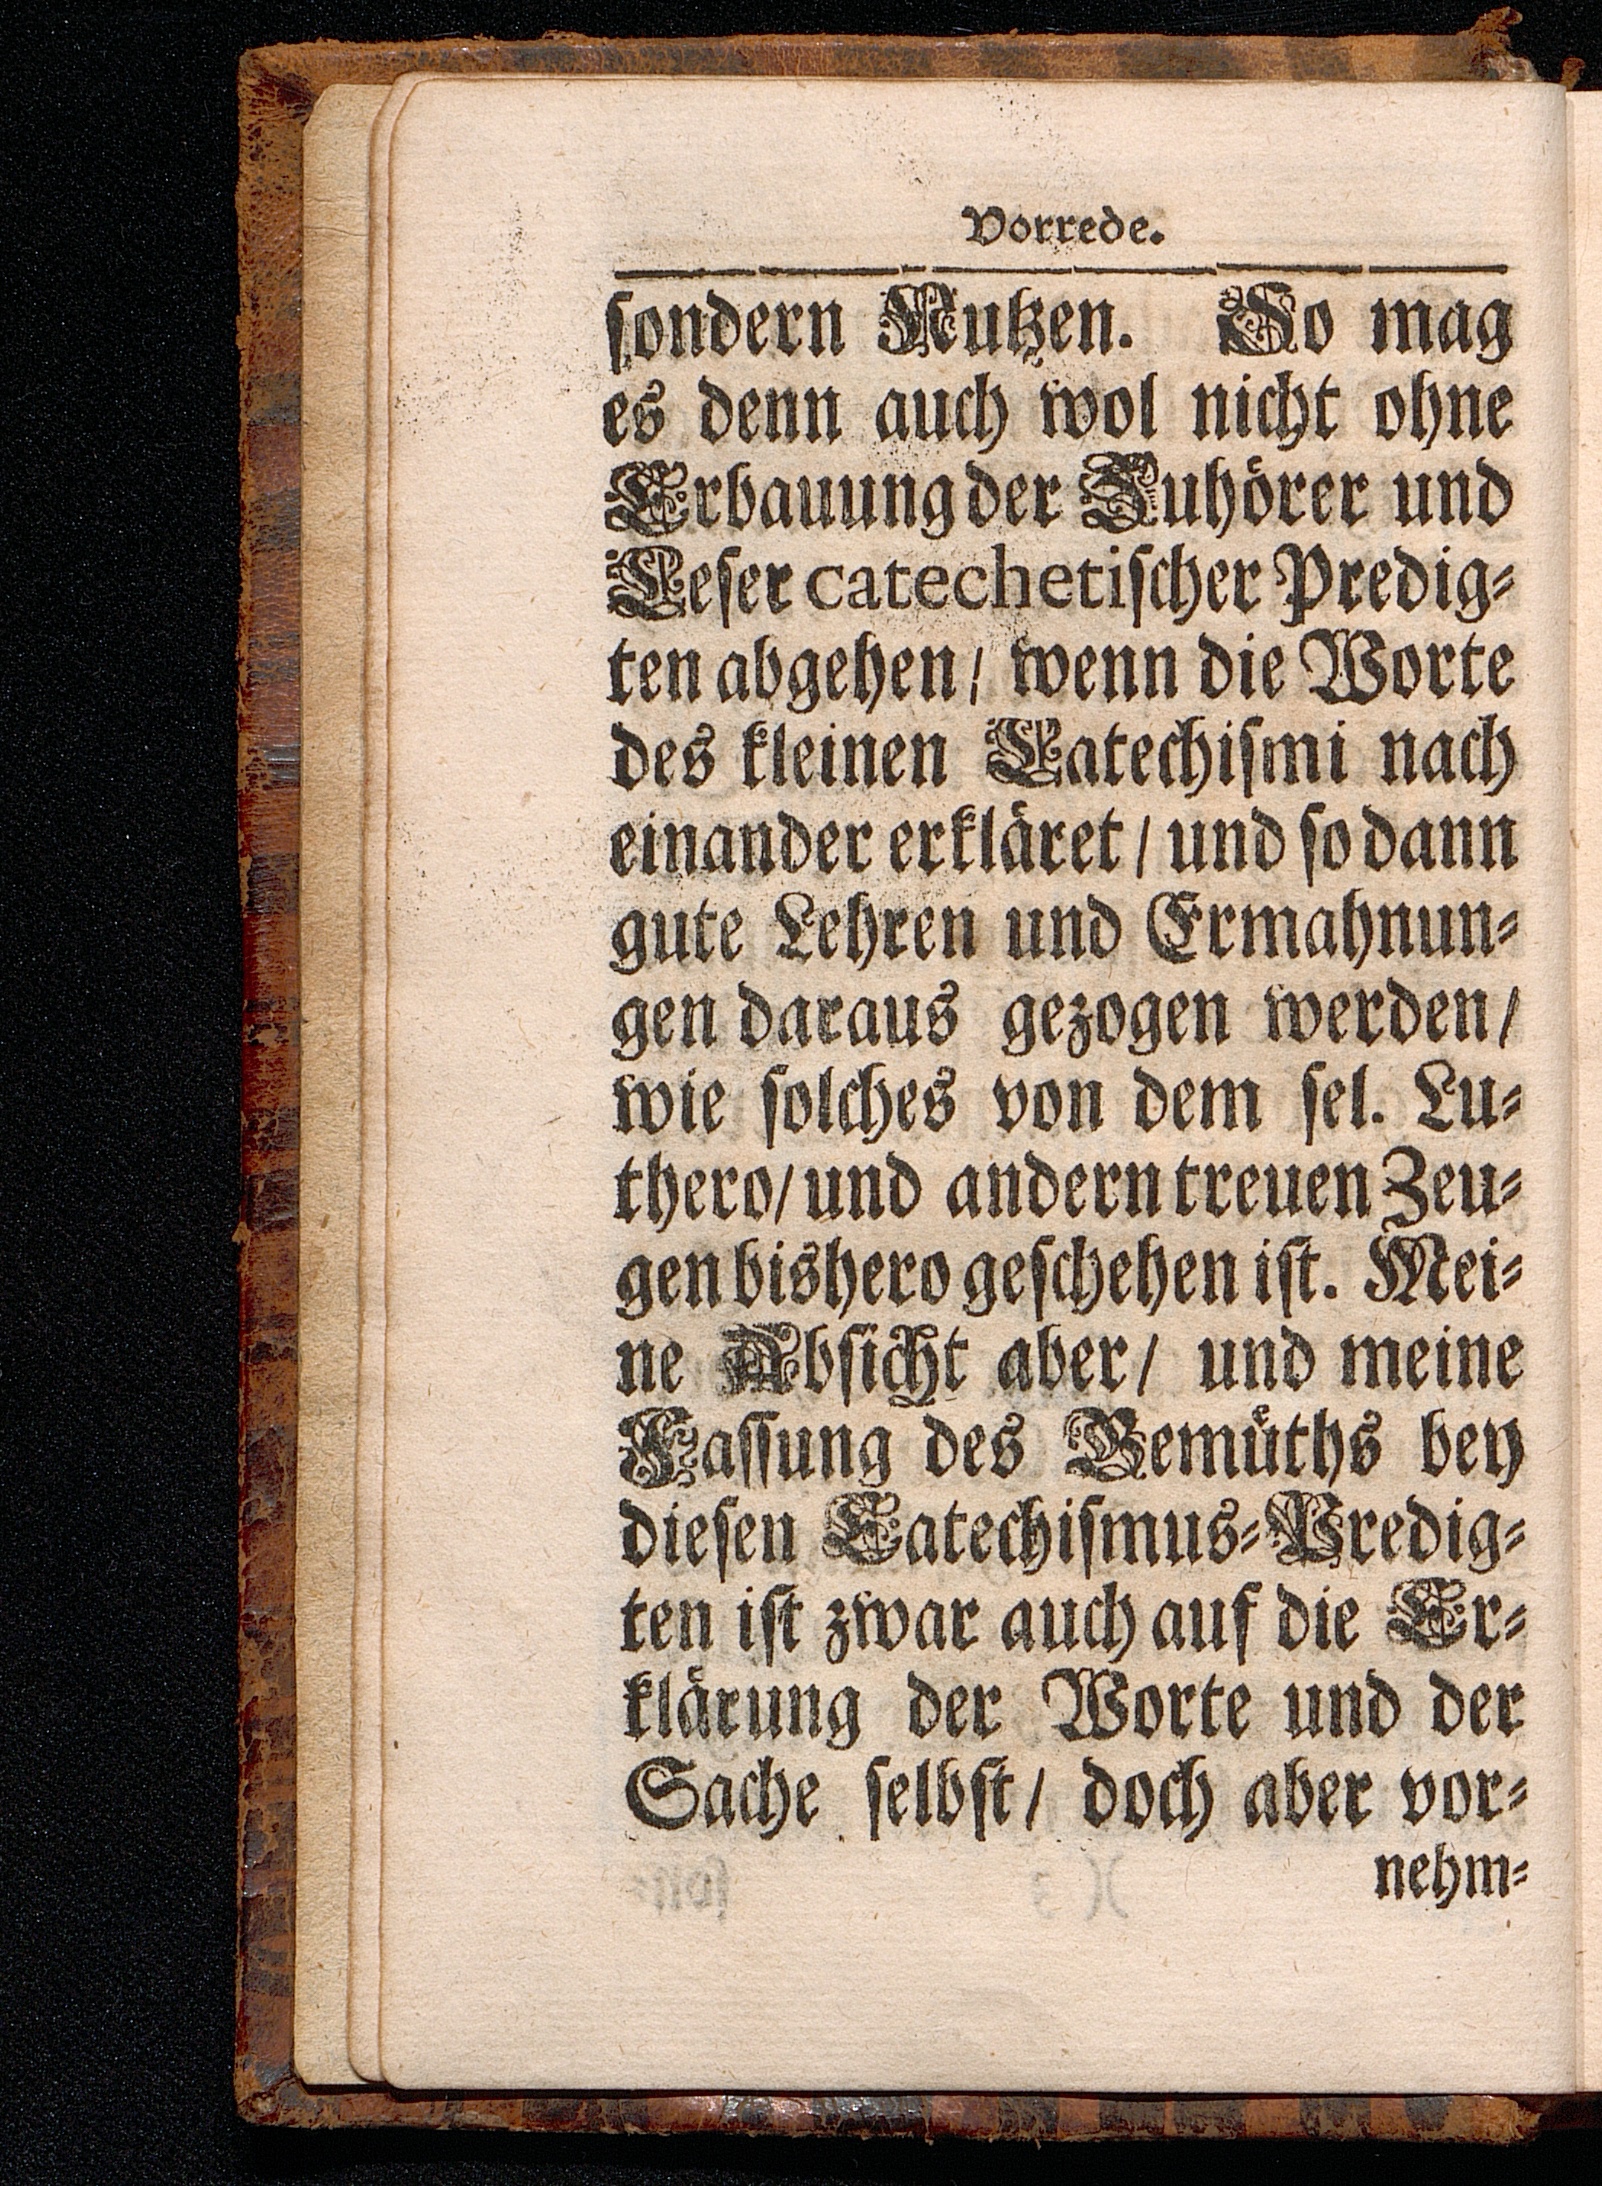 Vorrede.
ſondern Nutzen. So mag
es denn auch wol nicht ohne
Erbauung der Zuhörer und
Leſer catechetiſcher Predig⸗
ten abgehen/ wenn die Worte
des kleinen Catechiſmi nach
einander erkläret/ und ſo dann
gute Lehren und Ermahnun⸗
gen daraus gezogen werden/
wie ſolches von dem ſel. Lu⸗
thero/ und andern treuen Zeu⸗
gen bishero geſchehen iſt. Mei⸗
ne Abſicht aber/ und meine
Faſſung des Gemüths bey
dieſen Catechiſmus⸗Predig⸗
ten iſt zwar auch auf die Er⸗
klärung der Worte und der
Sache ſelbſt/ doch aber vor⸗
nehm⸗